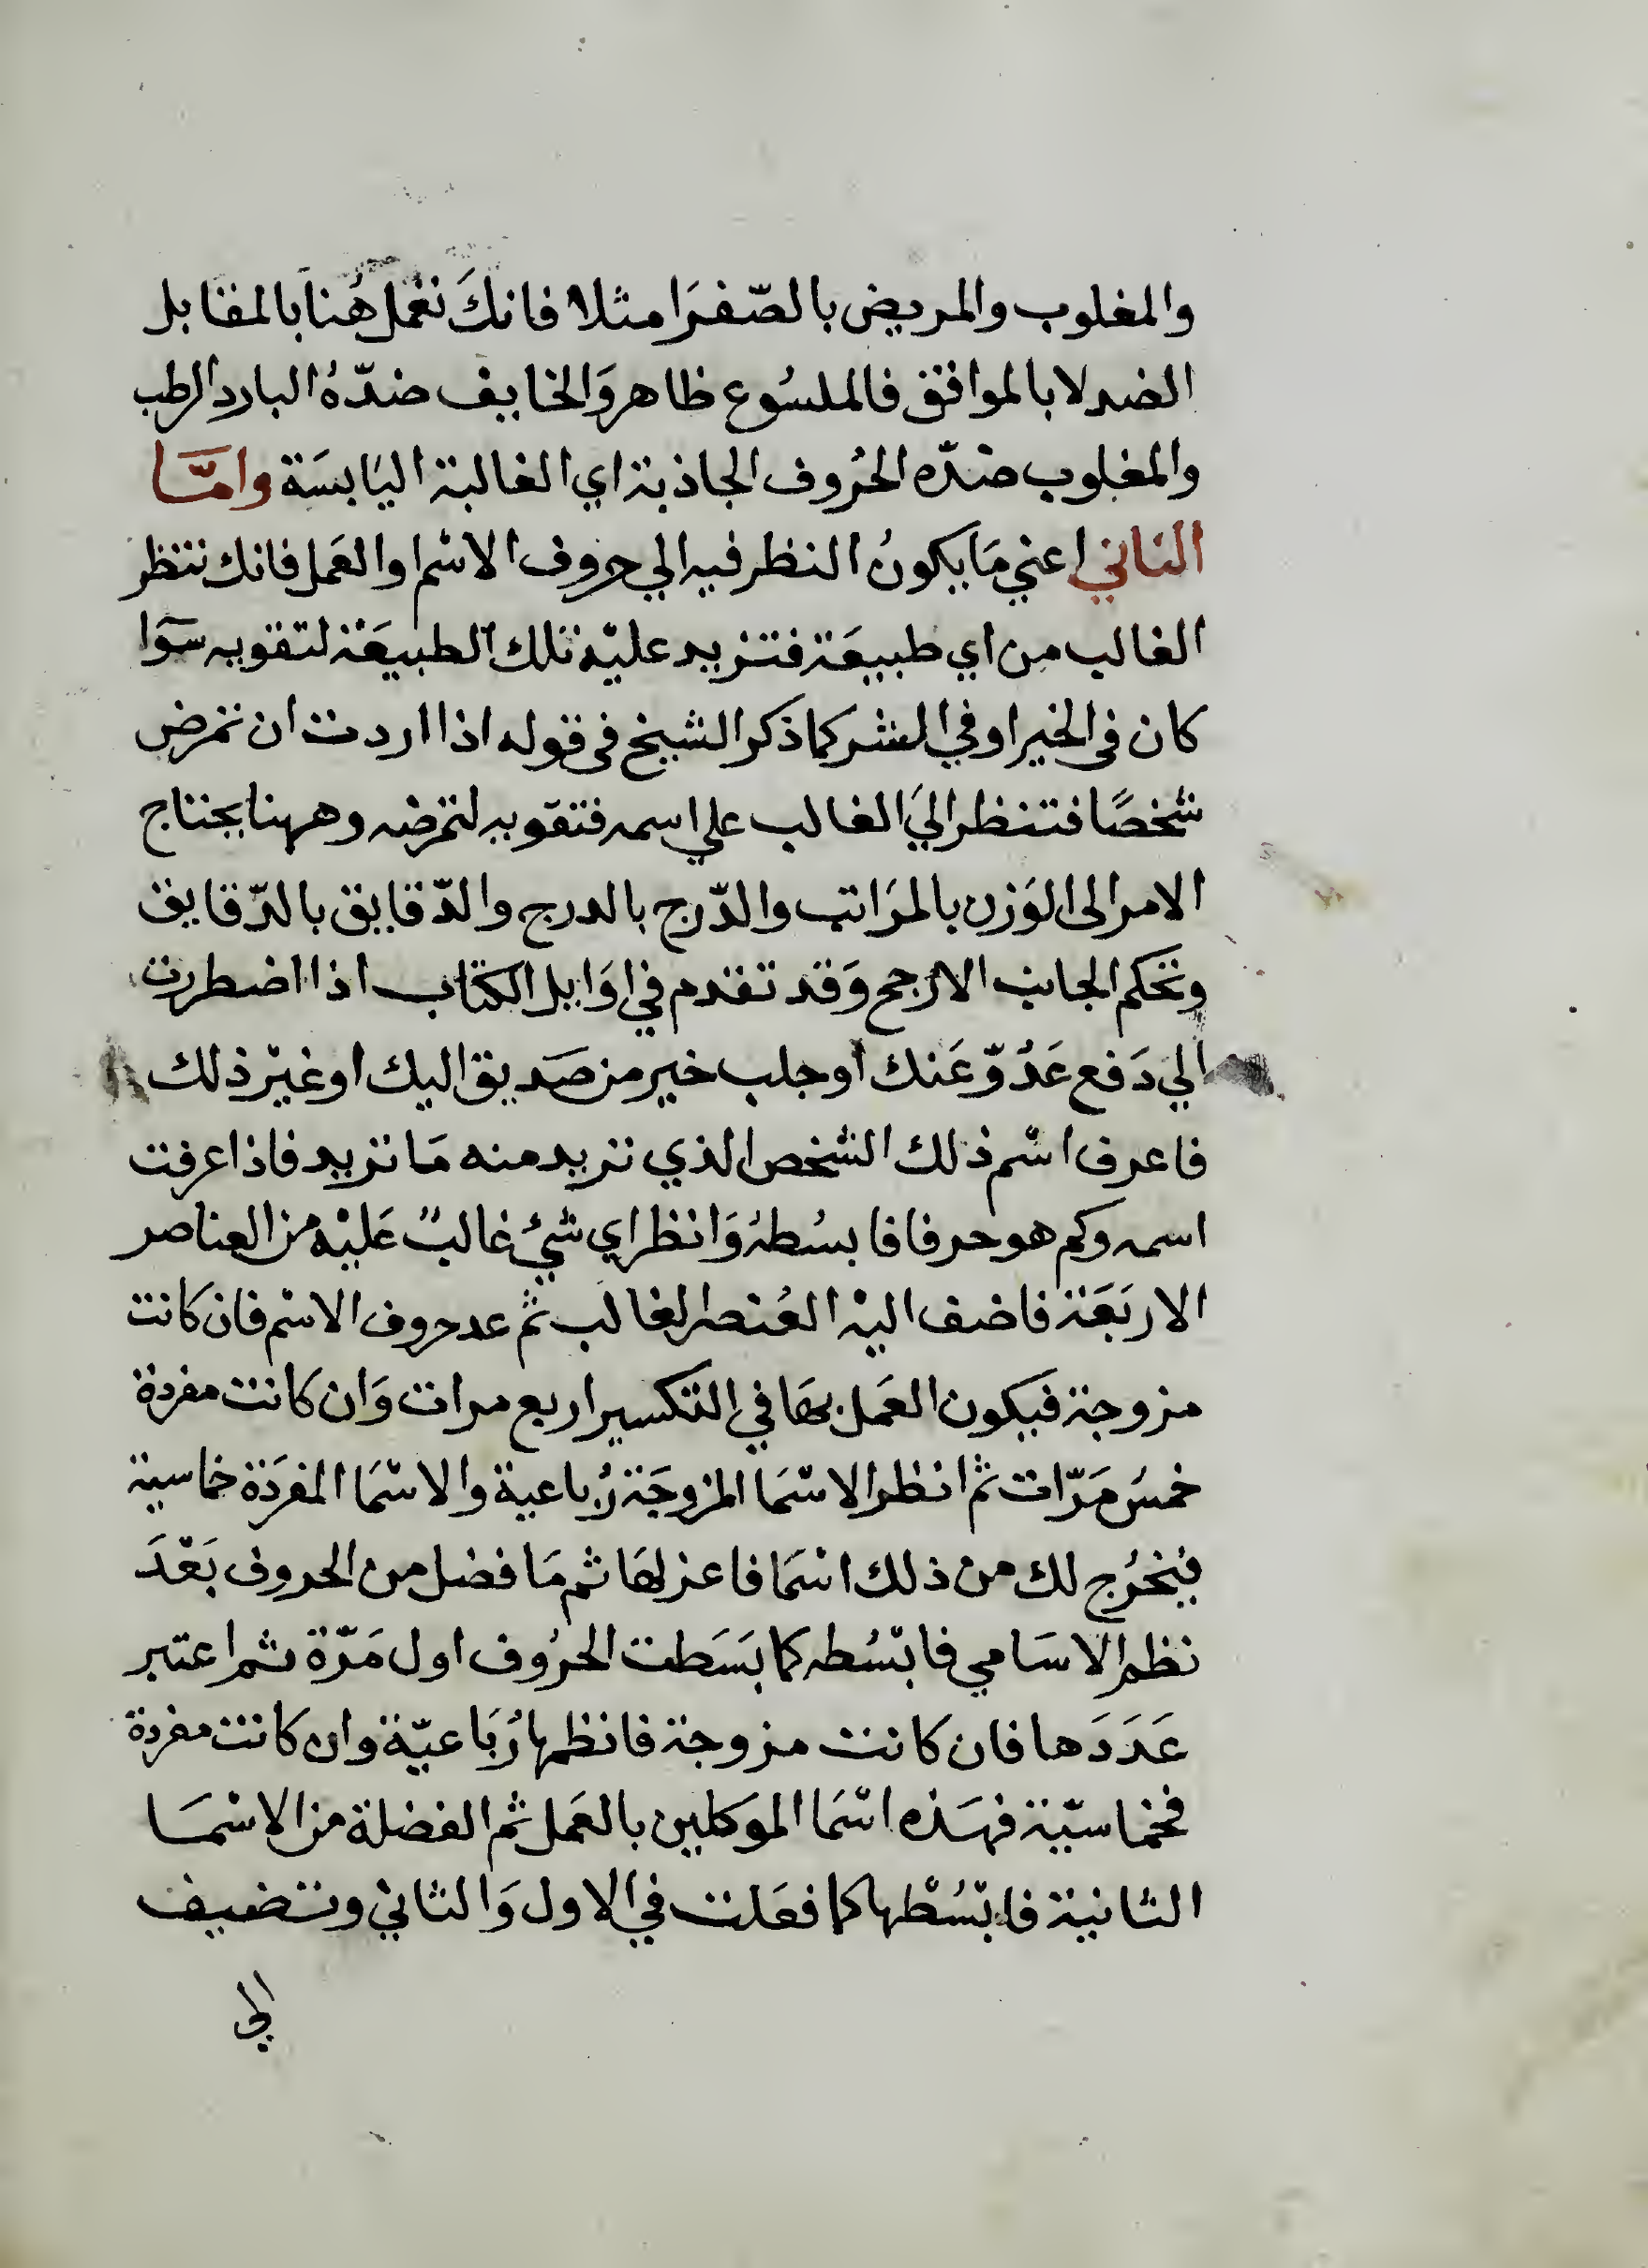 والمغلوب والمريض بالصّفرَا مثلا فانكَ تعمل هُنا بالمقابل
الضد لا بالموافق فالملسُوع ظاهر وَالخايف ضدّهُ البارد الرطب
والمغلوب ضدّه الحُروف الجاذبة اي الغالبة اليَابسَة وامّا
الثاني اعني مَا يكونُ النظر فيه الي حروف الاسْم والعَمل فانك تنظر
الغالب من اي طبيعَة فتزيد عليْه تلك الطبيعَة لتقويه سَوَا
كان في الخير او في الشر كما ذكر الشيخ في قوله اذا اردت ان تمرض
شخصًا فتنظر اليَ الغالب علي اسمه فتقويه لتمرضه وههنا يحتاج
الامر الى الوَزن بالمرَاتب والدّرج بالدرج والدّقايق بالدّقايق
وتحكم الجانب الارْجح وَقد تقدم في اوَايل الكتاب اذا اضطررت
الي دَفع عَدُوّ عَنك او جلب خير من صَديق اليك او غيْر ذلك
فاعرف اسْم ذلك الشخص الذي تريد منه مَا تريد فاذا عرفت
اسمه وكم هو حرفا فابسُطهُ وَانظر اي شيْءٍ غالبٌ عَليْه من العناصر
الاربَعَة فاضف اليْه العُنصر الغالب ثمّ عد حروف الاسْم فان كانت
مزوجة فيكون العَمل بهَا في التكسير اربع مرات وَان كانت مفردة
خمسُ مَرّات ثم انظر الاسْمَا المزوجَة رُباعية والاسْمَا المفرَدَة خماسية
فيَخرُج لك من ذلك اسْمَا فاعزلهَا ثم مَا فضل من الحروف بَعْدَ
نظم الاسَامي فابْسُطه كما بَسَطت الحرُوف اول مَرّة ثم اعتبر
عَدَدَها فان كانت مزوجة فانظمها رُبَاعيّة وان كانت مفردة
فخماسيّة فهَذه اسْمَا الموَكلين بالعَمل ثم الفضلة من الاسْمَا
الثانية فابْسُطْها كما فعَلت في الاول وَالثاني وتضيف
الي